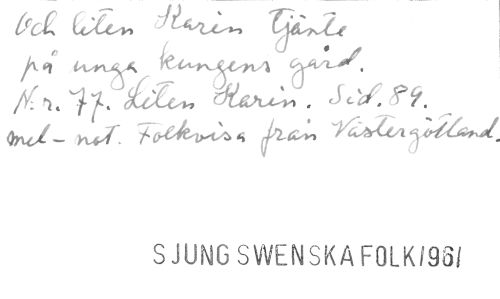 Och liten Karin tjänte
på unga kungens gård.
N:r. 77. Liten Karin. Sid. 89.
mel-not. Folkvisa från Västergötland.
SJUNG SWENSKA FOLK/961